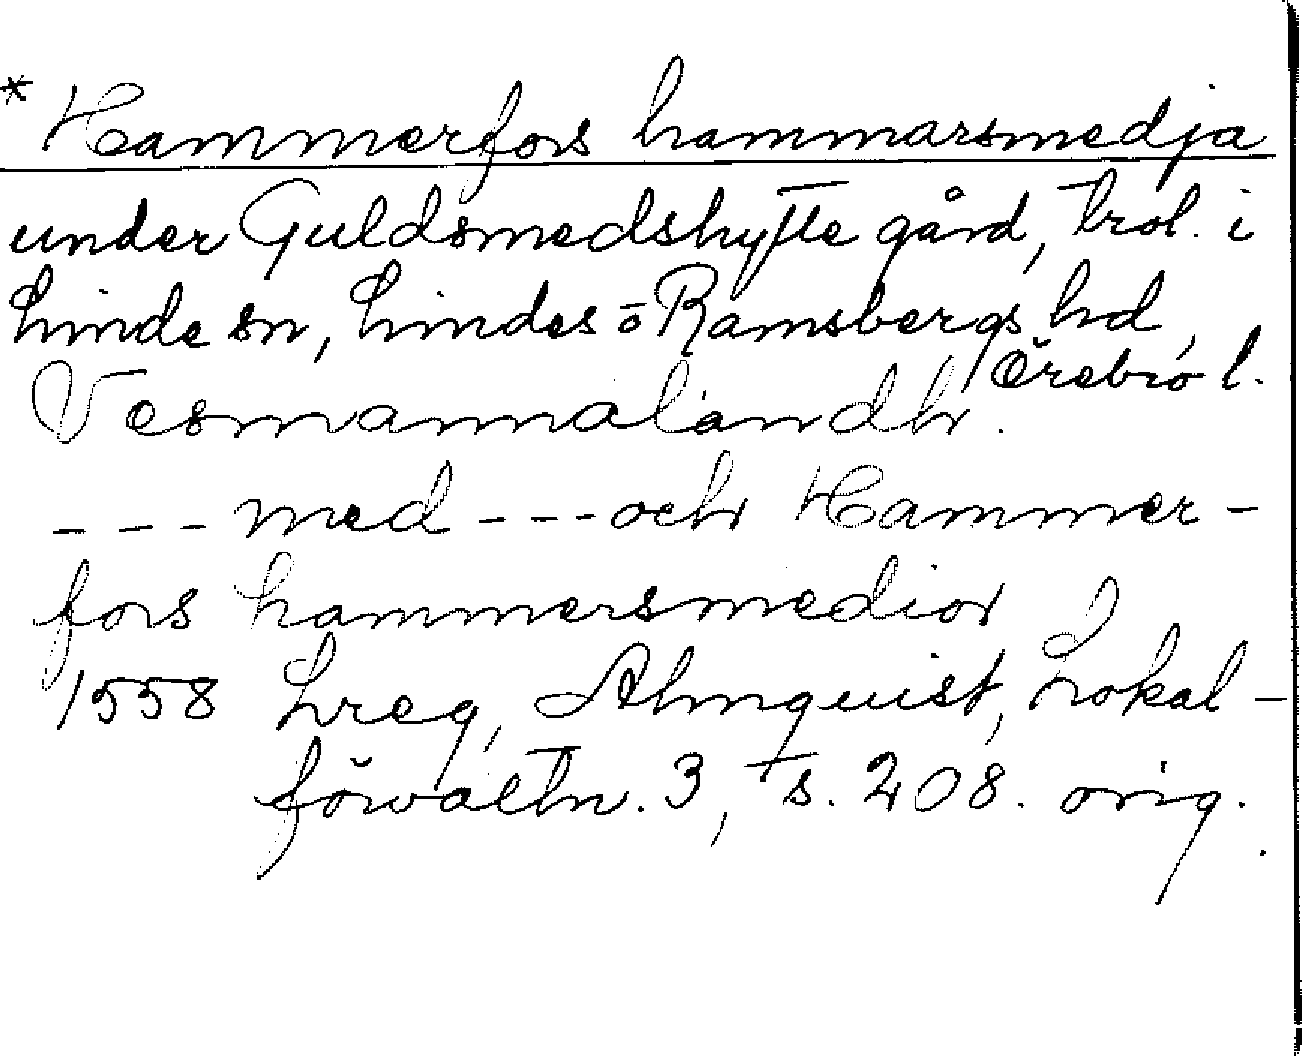 * Hammerfors hammarsmedja
under Guldsmedshytte gård, trol. i
Linde sn, Lindes o Ramsbergs hd,
Örebro l.
Vesmannalandh.
--- med --- och Hammer-
fors hammersmedior
1558 Lreg, Almquist, Lokal-
förvaltn. 3, s. 208. orig.